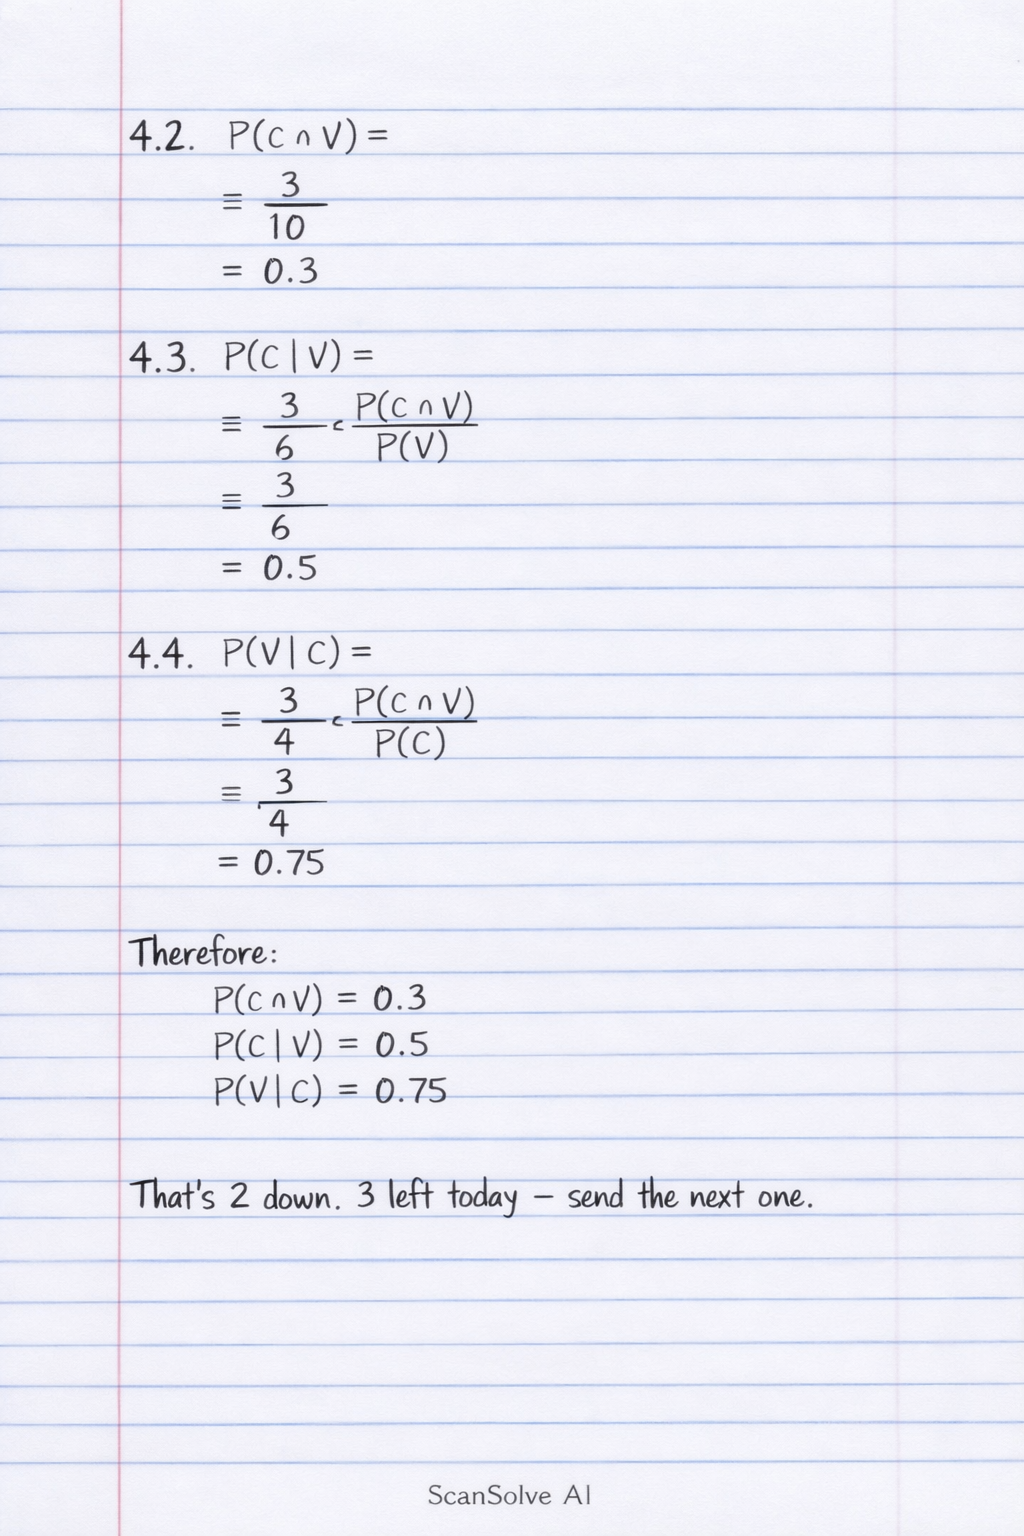 4.2. P(C ∩ V) =
≡ 3/10
= 0.3
4.3. P(C | V) =
≡ 3/6 c P(C ∩ V)/P(V)
≡ 3/6
= 0.5
4.4. P(V | C) =
≡ 3/4 c P(C ∩ V)/P(C)
≡ 3/4
= 0.75
Therefore:
P(C ∩ V) = 0.3
P(C | V) = 0.5
P(V | C) = 0.75
That's 2 down. 3 left today – send the next one.
ScanSolve AI